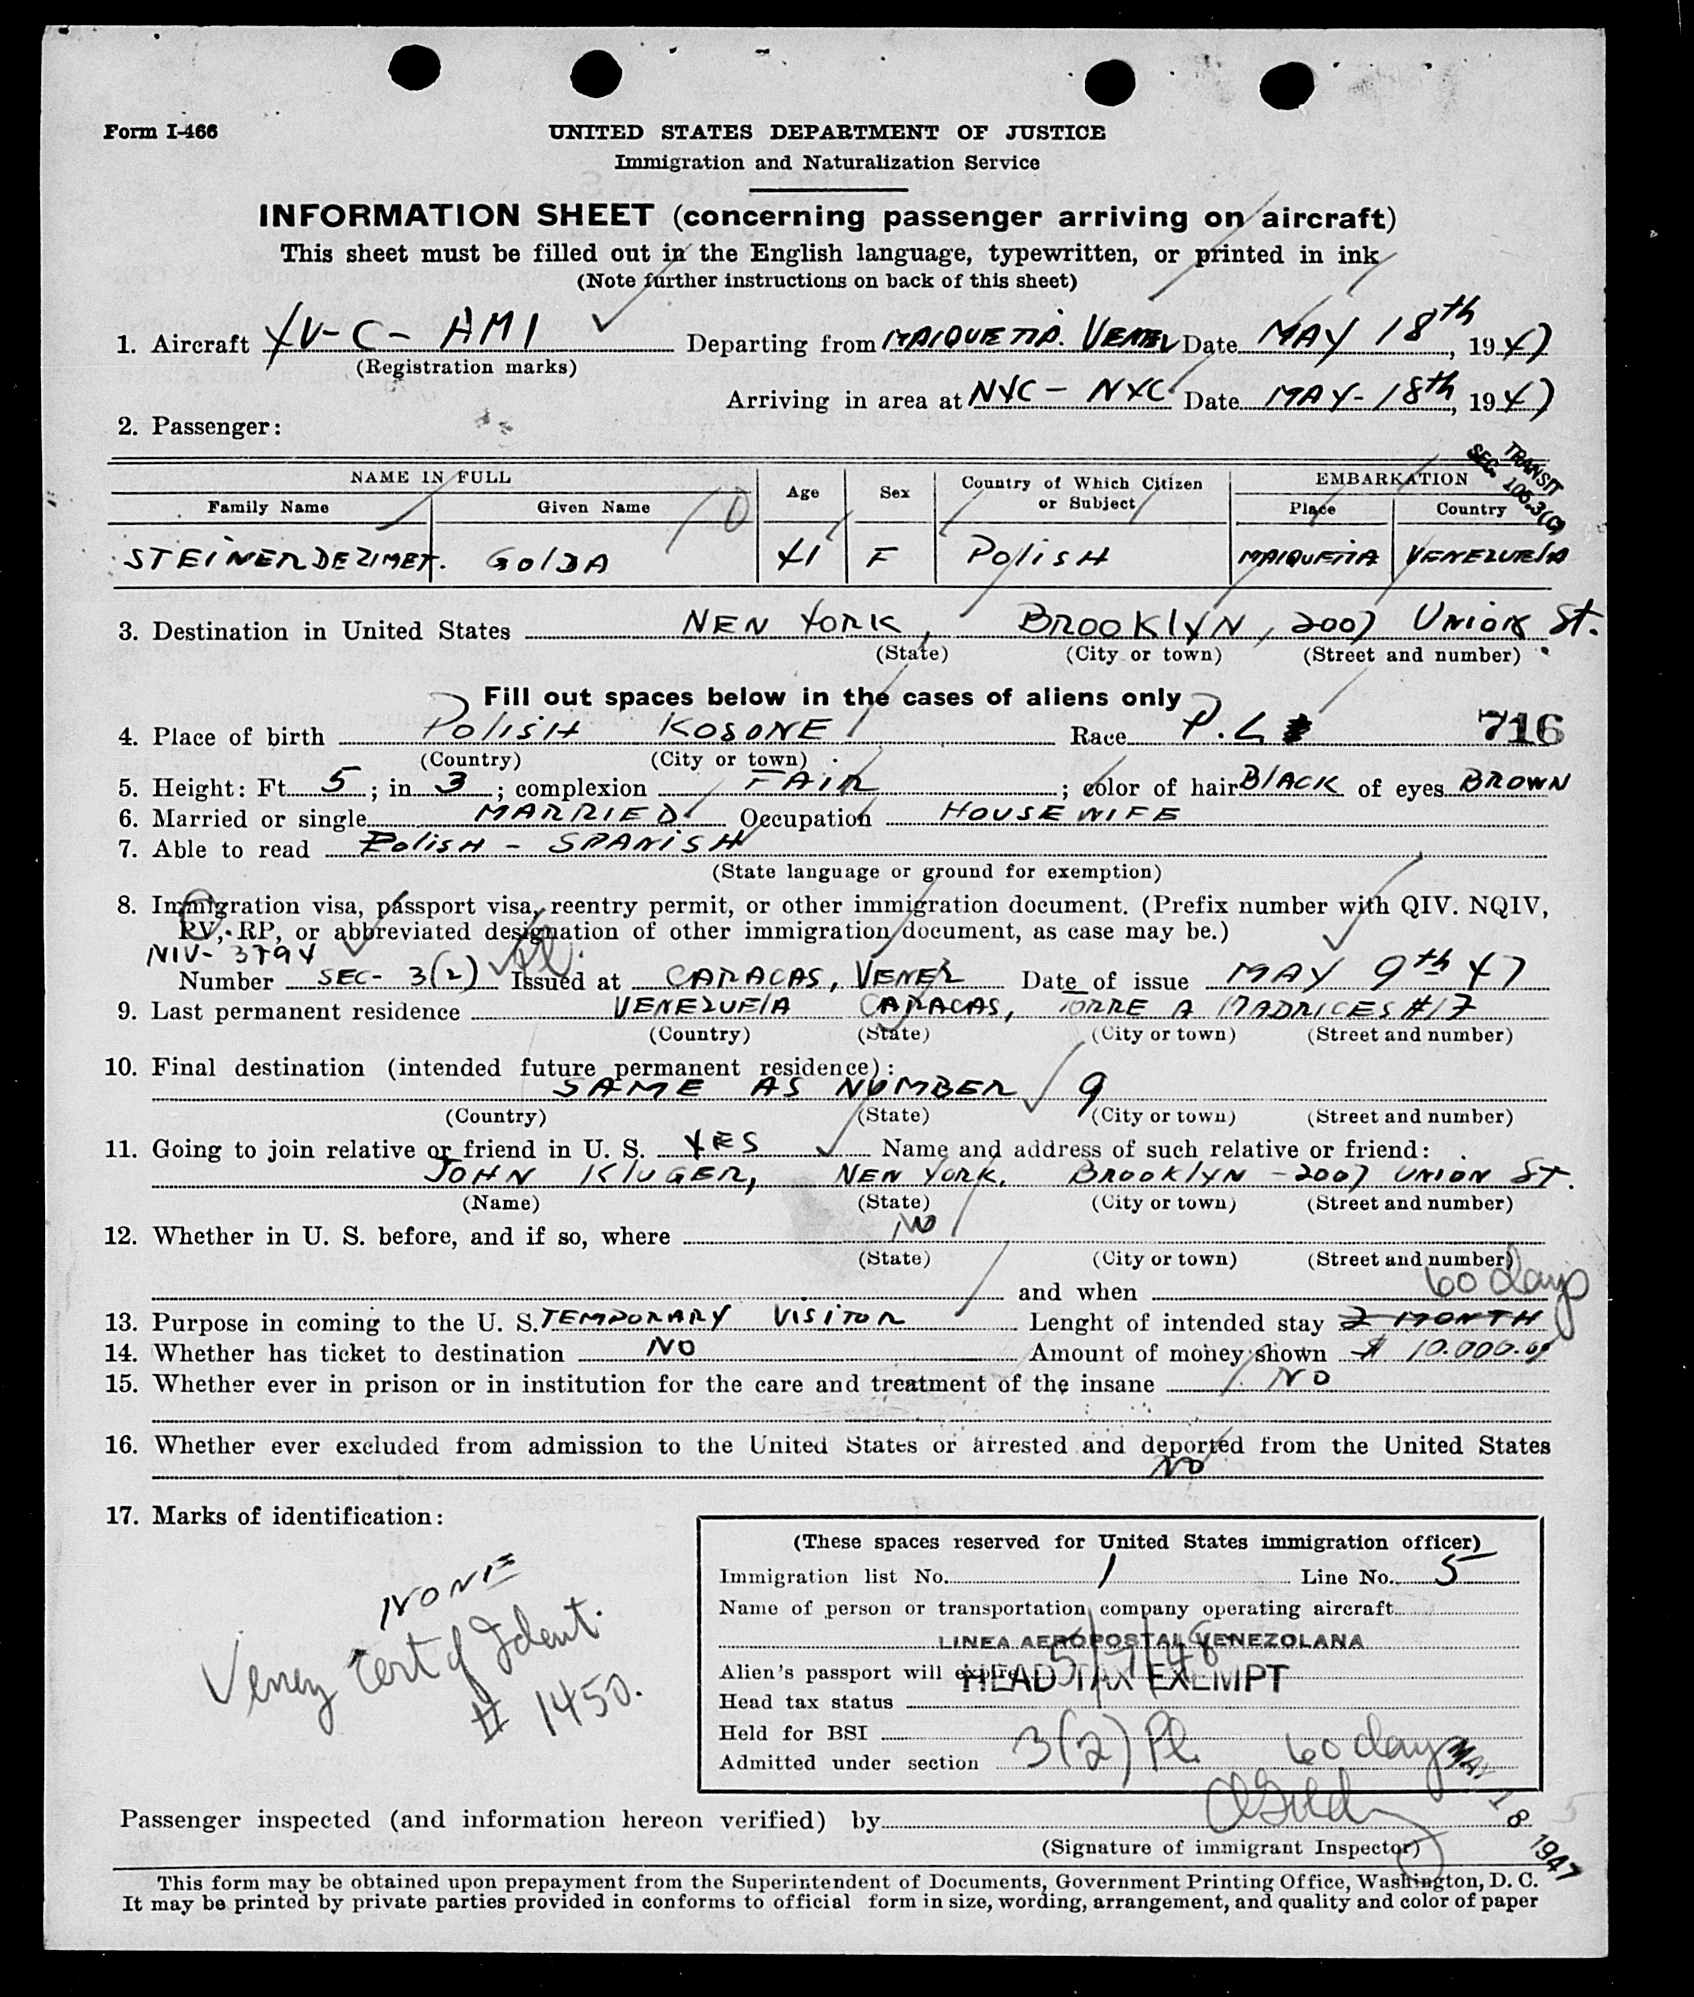 Form I-466
UNITED STATES DEPARTMENT OF JUSTICE
Immigration and Naturalization Service
INFORMATION SHEET (concerning passenger arriving on aircraft)
This sheet must be filled out in the English language, typewritten, or printed in ink
(Note further instructions on back of this sheet)
1. Aircraft YV-C- AMI Departing from MAIQUETIA. VENEZ Date MAY 18th, 1947
(Registration marks)
Arriving in area at NYC - NYC Date MAY- 18th, 1947
2. Passenger:
TRANSIT
SEC. 105.3(C)
NAME IN FULL Age Sex Country of Which Citizen or Subject EMBARKATION
Family Name Given Name Place Country
STEINER DE ZIMET. GOlDA 41 F POlISH MAIQUETIA VENEZUElA
3. Destination in United States NEW YORK, BROOKlYN, 2007 UNION St.
(State) (City or town) (Street and number)
Fill out spaces below in the cases of aliens only
4. Place of birth POlISH KOSONE Race P.L 716
(Country) (City or town)
5. Height: Ft. 5; in 3; complexion FAIR; color of hair BlACK of eyes BROWN
6. Married or single MARRIED Occupation HOUSEWIFE
7. Able to read POlISH - SPANISH
(State language or ground for exemption)
8. Immigration visa, passport visa, reentry permit, or other immigration document. (Prefix number with QIV. NQIV,
RV, RP, or abbreviated designation of other immigration document, as case may be.)
NIV- 3794
Number SEC- 3(2) Pl. Issued at CARACAS, VENEZ Date of issue MAY 9th 47
9. Last permanent residence VENEZUElA CARACAS, TORRE A MADRICES #17
(Country) (State) (City or town) (Street and number)
10. Final destination (intended future permanent residence):
SAME AS NUMBER 9
(Country) (State) (City or town) (Street and number)
11. Going to join relative or friend in U. S. YES Name and address of such relative or friend:
JOHN KlUGER, NEW YORK. BROOKlYN - 2007 UNION ST.
(Name) (State) (City or town) (Street and number)
12. Whether in U. S. before, and if so, where NO
(State) (City or town) (Street and number)
and when
60 days
13. Purpose in coming to the U. S. TEMPORARY VISITOR Lenght of intended stay 2 MONTH
14. Whether has ticket to destination NO Amount of money shown $ 10.000.00
15. Whether ever in prison or in institution for the care and treatment of the insane NO
16. Whether ever excluded from admission to the United States or arrested and deported from the United States
NO
17. Marks of identification:
NONE
Venez Cert of Ident.
# 1450.
(These spaces reserved for United States immigration officer)
Immigration list No. 1 Line No. 5
Name of person or transportation company operating aircraft
LINEA AEROPOSTAL VENEZOLANA
Alien's passport will expire 5/9/48
HEAD TAX EXEMPT
Head tax status
Held for BSI
Admitted under section 3(2) Pl. 60 days
MAY 18 1947
Passenger inspected (and information hereon verified) by
(Signature of immigrant Inspector)
This form may be obtained upon prepayment from the Superintendent of Documents, Government Printing Office, Washington, D. C.
It may be printed by private parties provided in conforms to official form in size, wording, arrangement, and quality and color of paper